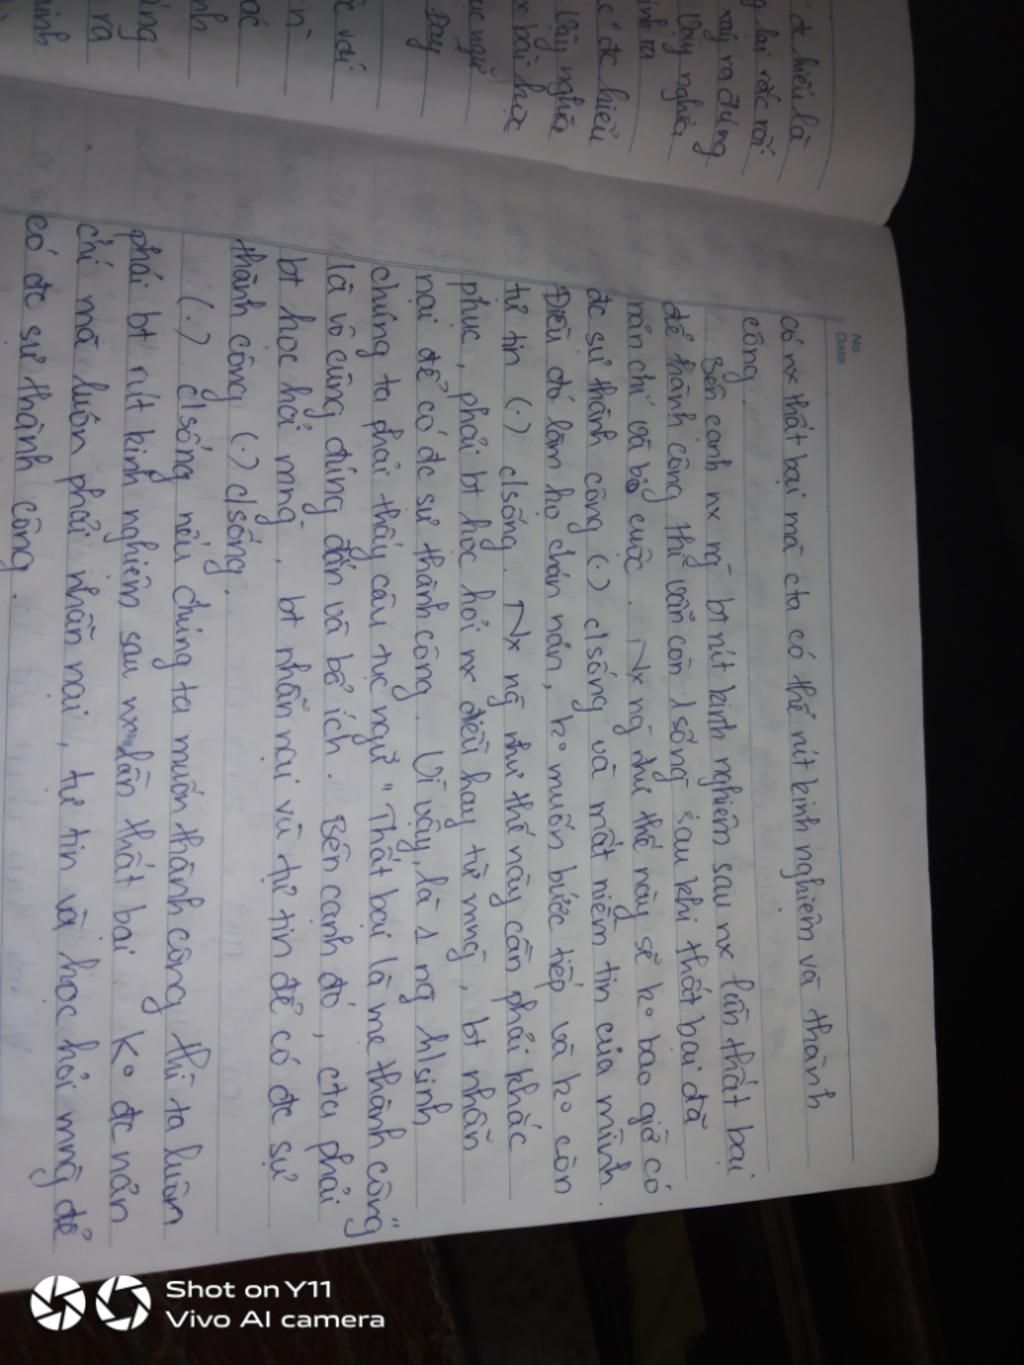 đc hiểu là
lại rắc rối
xảy ra đúng
Vậy nghĩa
đc hiểu
Vậy nghĩa
bài học
Đây
No.
Date
có nx thất bại mà cta có thể rút kinh nghiệm và thành
công.
Bên cạnh nx ng̃ bt rút kinh nghiệm sau nx lần thất bại
để thành công thì vẫn còn 1 số ng̃ sau khi thất bại đã
nản chí và bỏ cuộc. Nx ng̃ như thế này sẽ ko bao giờ có
đc sự thành công (.) c/sống và mất niềm tin của mình.
Điều đó làm họ chán nản, ko muốn bước tiếp và ko còn
tự tin (.) c/sống. Nx ng̃ như thế này cần phải khắc
phục, phải bt học hỏi nx điều hay từ mng̃, bt nhẫn
nại để có đc sự thành công. Vì vậy, là 1 ng h/sinh
chúng ta phải thấy câu tục ngữ "Thất bại là mẹ thành công"
là vô cùng đúng đắn và bổ ích. Bên cạnh đó, cta phải
bt học hỏi mng̃, bt nhẫn nại và tự tin để có đc sự
thành công (.) c/sống.
(.) c/sống nếu chúng ta muốn thành công thì ta luôn
phải bt rút kinh nghiệm sau nx lần thất bại. Ko đc nản
chí mà luôn phải nhẫn nại, tự tin và học hỏi mng̃ để
có đc sự thành công.
Shot on Y11
Vivo AI camera